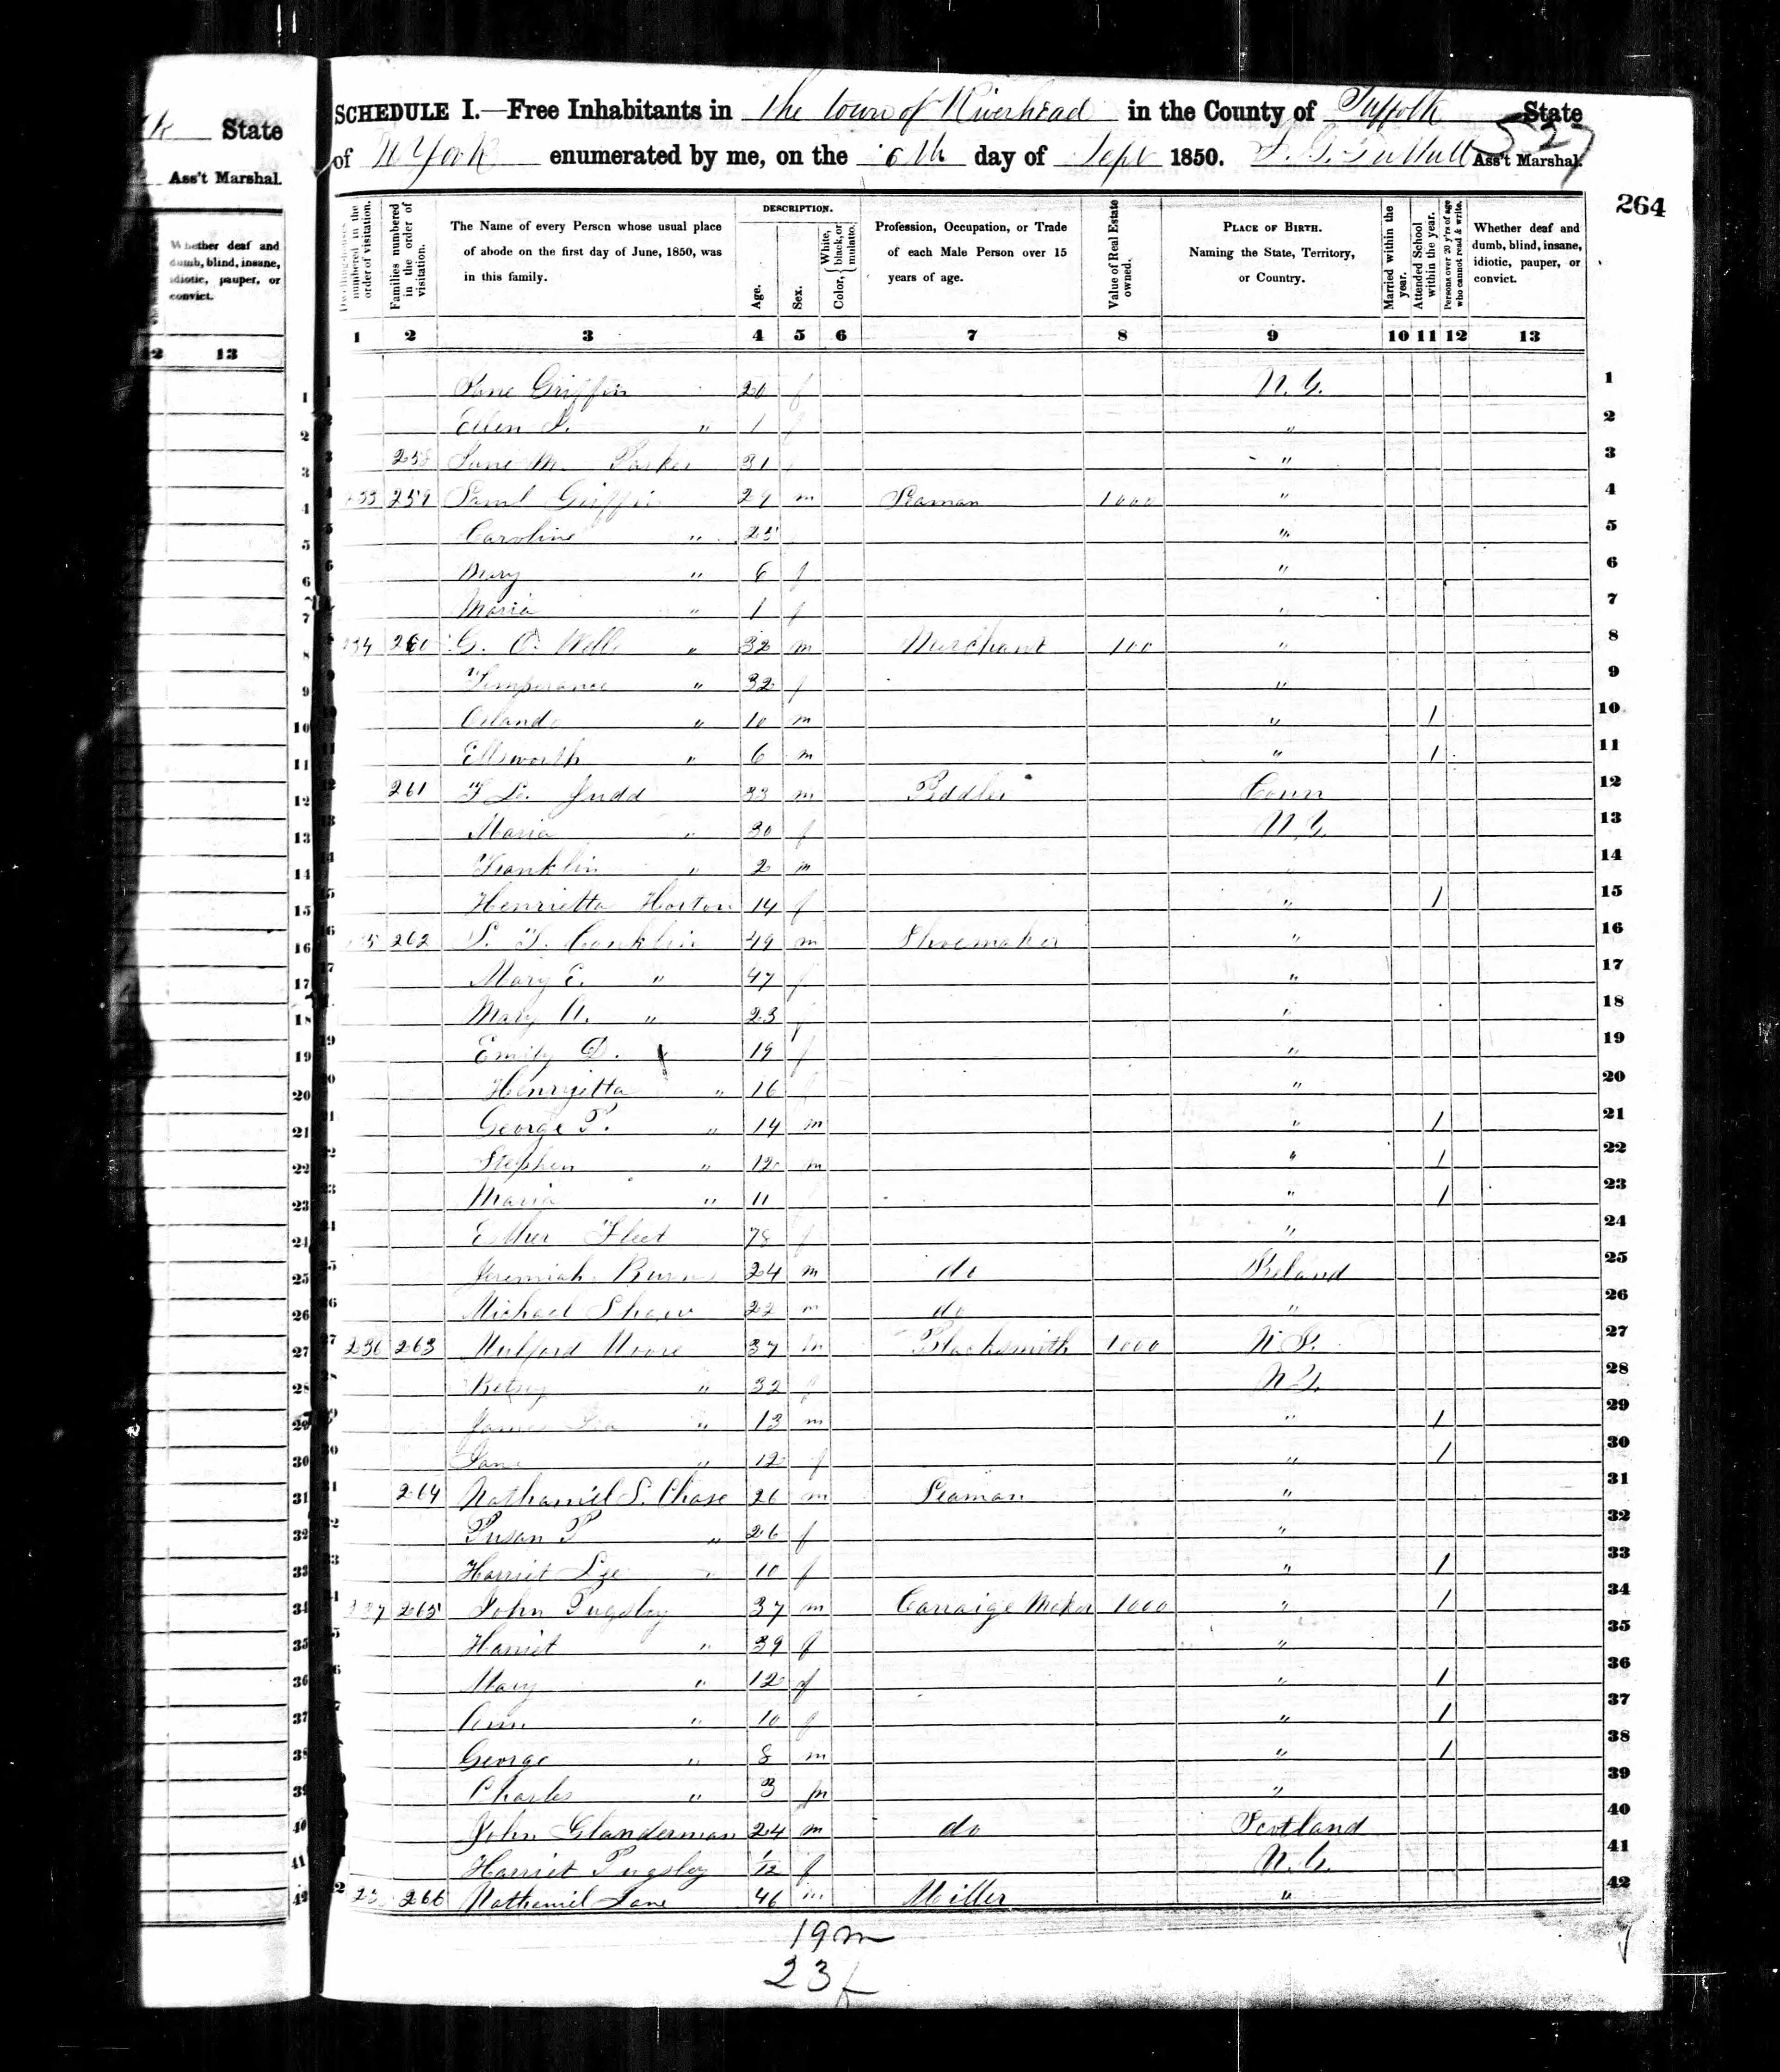 k State
Ass't Marshal.
Whether deaf and
dumb, blind, insane,
idiotic, pauper, or
convict.
12 13
SCHEDULE I.—Free Inhabitants in the town of Riverhead in the County of Suffolk State
of N York enumerated by me, on the 6th day of Sept 1850. Ass't Marshal.
527
264
Dwelling-houses numbered in the order of visitation.
Families numbered in the order of visitation.
The Name of every Person whose usual place of abode on the first day of June, 1850, was in this family.
DESCRIPTION.
Age.
Sex.
Color, { White, black, or mulatto.
Profession, Occupation, or Trade of each Male Person over 15 years of age.
Value of Real Estate owned.
PLACE OF BIRTH. Naming the State, Territory, or Country.
Married within the year.
Attended School within the year.
Persons over 20 y'rs of age who cannot read & write.
Whether deaf and dumb, blind, insane, idiotic, pauper, or convict.
1 2 3 4 5 6 7 8 9 10 11 12 13
1 Jane Griffin 20 f N.Y. 1
2 Ellen " 1 f " 2
3 258 Jane M. Parker 31 " 3
4 259 Saml Griffin 29 m Seaman 1000 " 4
5 Caroline " 25 " 5
6 Mary " 6 f " 6
7 Maria " 1 f " 7
8 260 " 32 m Merchant 100 " 8
9 Temperance " 32 f " 9
10 Orlando " 10 m " 1 10
11 Ellsworth " 6 m " 1 11
12 261 Judd 33 m Peddler Conn 12
13 Maria " 30 f N.Y. 13
14 Franklin " 2 m 14
15 Henrietta Horton 14 f " 1 15
16 262 S. T. Conklin 49 m Shoemaker " 16
17 Mary E. " 47 f " 17
18 Mary A. " 23 f " 18
19 Emily D. " 19 f " 19
20 Henryetta " 16 " 20
21 George P. " 14 m " 1 21
22 Stephen " 12 m " 1 22
23 Maria " 11 " 1 23
24 Esther Fleet 78 f " 24
25 Jeremiah Burns 24 m do Ireland 25
26 Michael Shaw 22 m do " 26
27 236 263 Mulford Moore 37 m Blacksmith 1000 27
28 Betsey " 32 f N.Y. 28
29 James " 13 m " 1 29
30 Jane " 12 f " 1 30
31 264 Nathaniel S. Chase 26 m Seaman " 31
32 Susan P " 26 f " 32
33 Harriet " 10 f " 1 33
34 237 265 John Pugsley 37 m Carraige Maker 1000 " 1 34
35 Harriet " 39 f " 35
36 Mary " 12 f " 1 36
37 Ann " 10 f " 1 37
38 George " 8 m " 1 38
39 Charles " 3 m " 39
40 John Glanderman 24 m do Scotland 40
41 Harriet Pugsley 1/12 f N.Y. 41
42 23 266 Nathaniel Lane 46 m Miller " 42
19m
23f